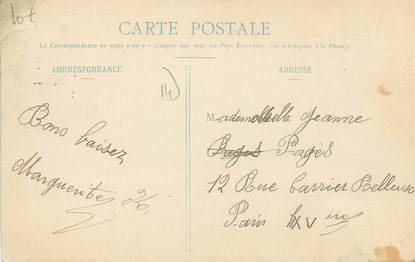 lot
CARTE POSTALE
La Correspondance au recto n'est pas acceptée par tous les Pays Étrangers. (Se renseigner à la Poste).
CORRESPONDANCE
ADRESSE
14)
Bons baisers
Marguerite
Mademoiselle Jeanne
Pagès Pagès
12 Rue Carrier Belleuse
Paris XV